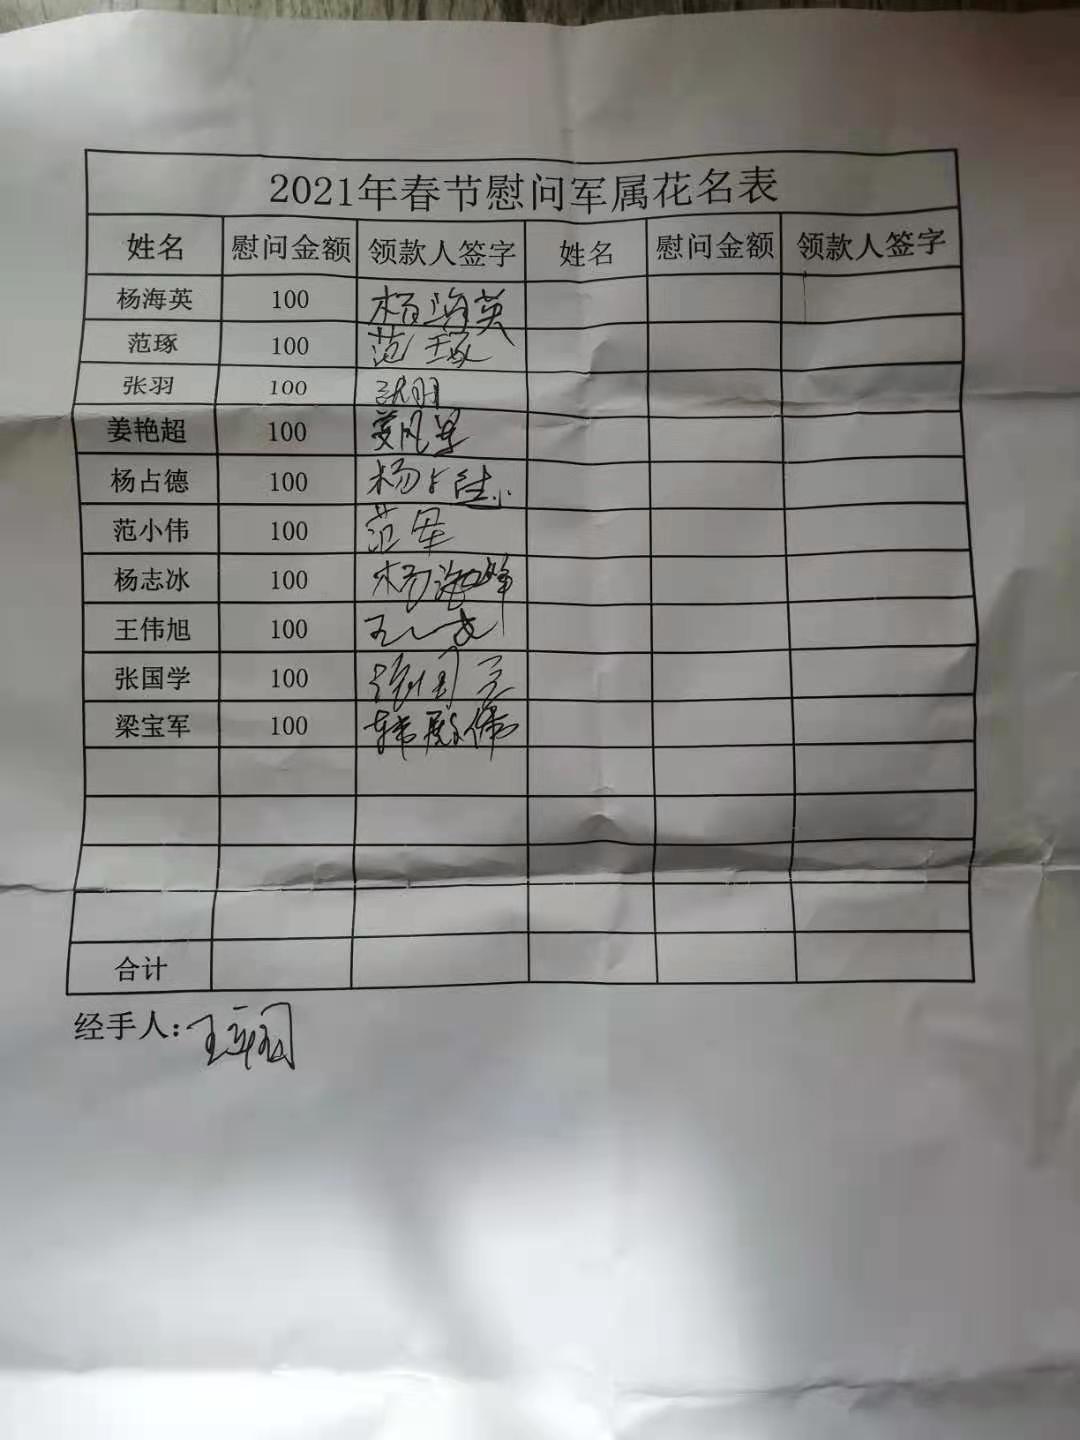 2021年春节慰问军属花名表
姓名 慰问金额 领款人签字 姓名 慰问金额 领款人签字
杨海英 100 杨海英
范琢 100 范琢
张羽 100 张羽
姜艳超 100 姜凤
杨占德 100 杨占德
范小伟 100 范军
杨志冰 100 杨海峰
王伟旭 100 王
张国学 100 张国
梁宝军 100 韩殿伟
合计
经手人：王